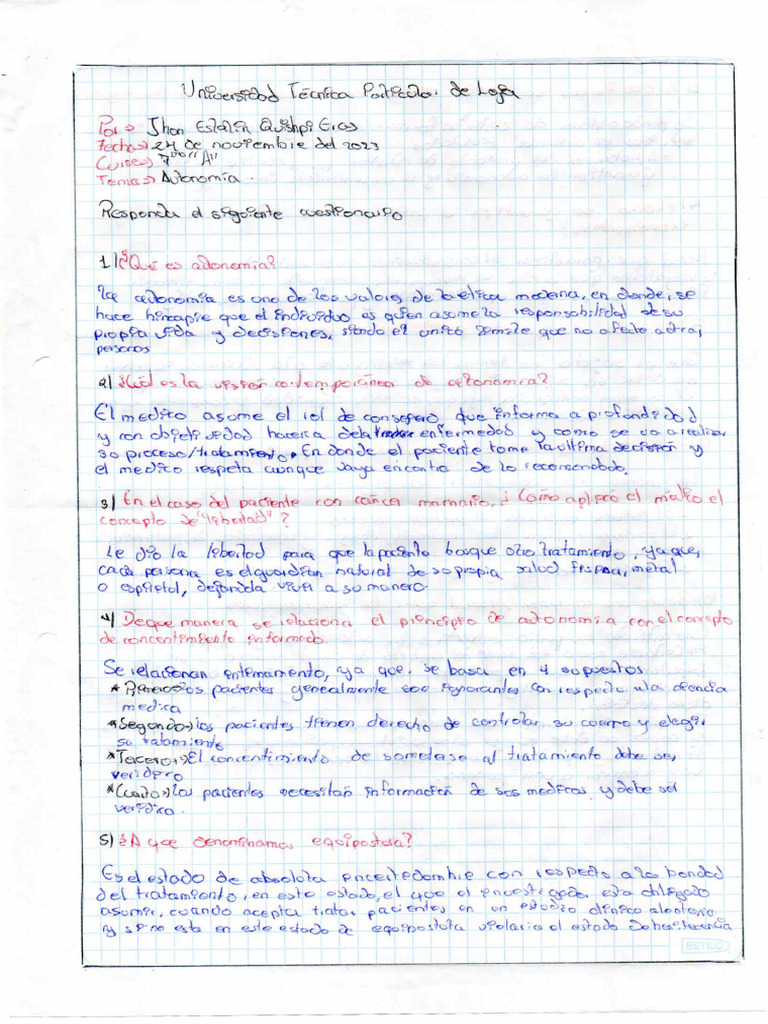 Universidad Técnica Particular de Loja
Por => Jhon Estalin Quishpi Eras
Fecha=> 24 de noviembre del 2023
Curso=> 7mo "A"
Tema=> Autonomía.
Responda el siguiente cuestionario
1) ¿Qué es autonomía?
La autonomía es uno de los valores de la etica moderna, en donde, se
hace hincapie que el individuo es quien asume la responsabilidad de su
propia vida y decisiones, siendo el unico limite que no afecte a otras
personas
2) ¿Cuál es la visión contemporánea de autonomía?
El medico asume el rol de consejero, que informa a profundidad
y con objetividad hacerca de la enfermedad y como se va a realizar
su proceso/tratamiento. En donde el paciente tome la ultima decisión y
el medico respeta aunque vaya encontra de lo recomendado.
3) En el caso del paciente con cáncer mamario, ¿Cómo aplicó el médico el
concepto de "libertad"?
Le dio la libertad para que la paciente busque otro tratamiento, ya que,
cada persona es el guardian natural de su propia salud fisica, mental
o espiritual, dejandola vivir a su manera.
4) De que manera se relaciona el principio de autonomía con el concepto
de concentimiento informado.
Se relacionan intimamente, ya que se basa en 4 supuestos
* Primero=> los pacientes generalmente son ignorantes con respecto a la ciencia
medica
* Segundo=> los pacientes tienen derecho de controlar su cuerpo y elegir
su tratamiento
* Tercero=> El concentimiento de someterse al tratamiento debe ser
veridico
* Cuarto=> Los pacientes necesitan información de sus medicos y debe ser
veridica.
5) ¿A que denominamos equipostura?
Es el estado de absoluta encertedumbre con respecto a la bondad
del tratamiento, en este estado, el que el investigador esta obligado
asumir, cuando acepta tratar pacientes en un estudio clinico aleatorio
y si no esta en este estado de equipostura violaria el estado
ESTILO